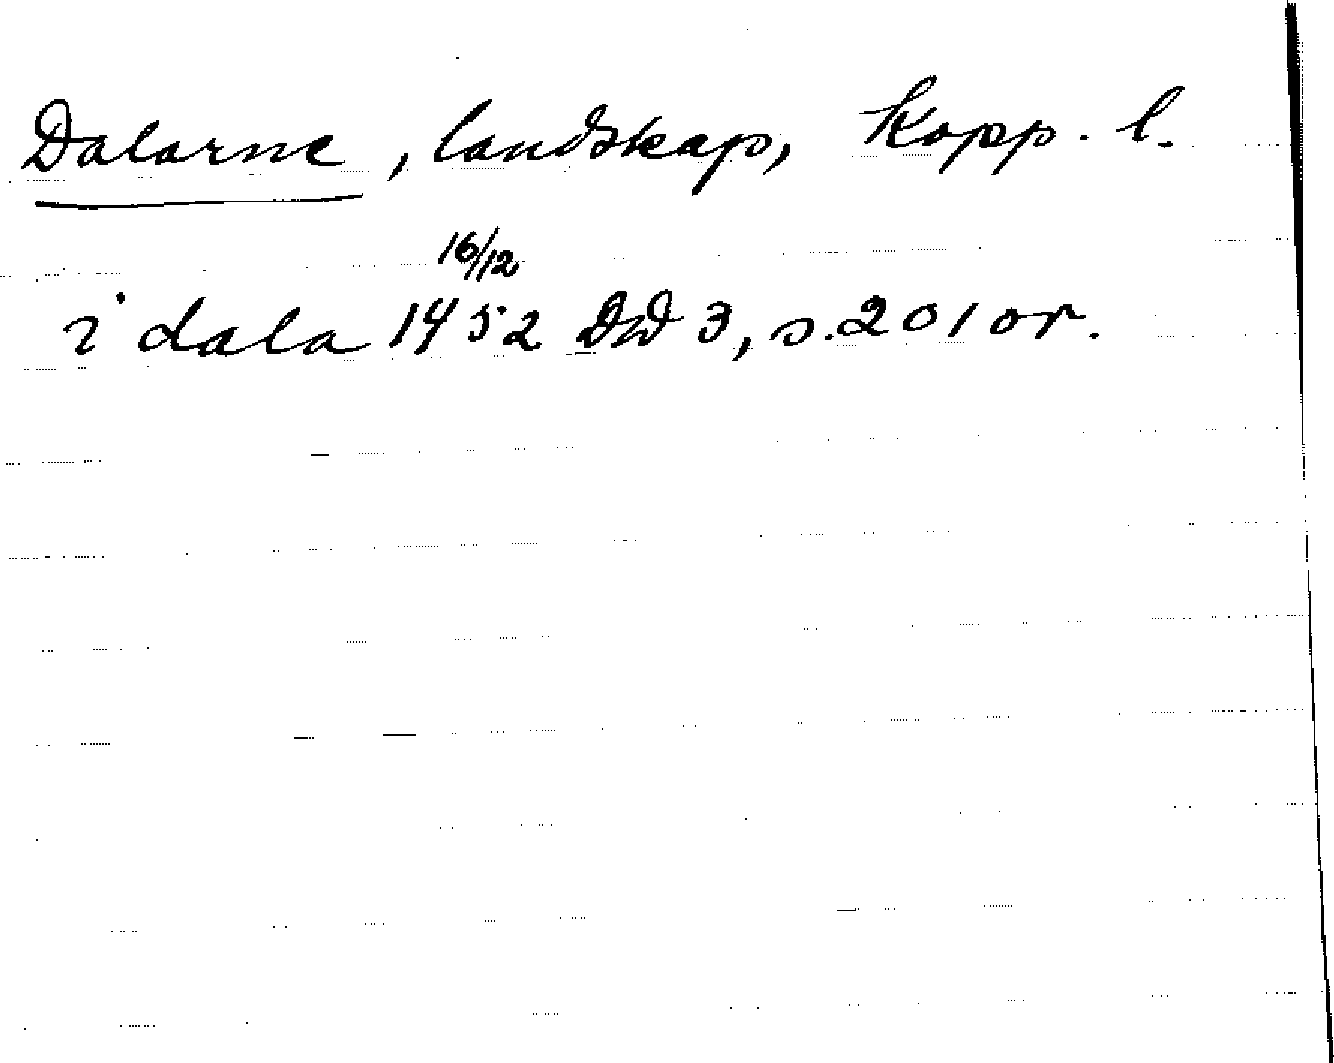 Dalarne, landskap, Kopp. l.
16/12
i dala 1452 DD 3, s. 201 or.